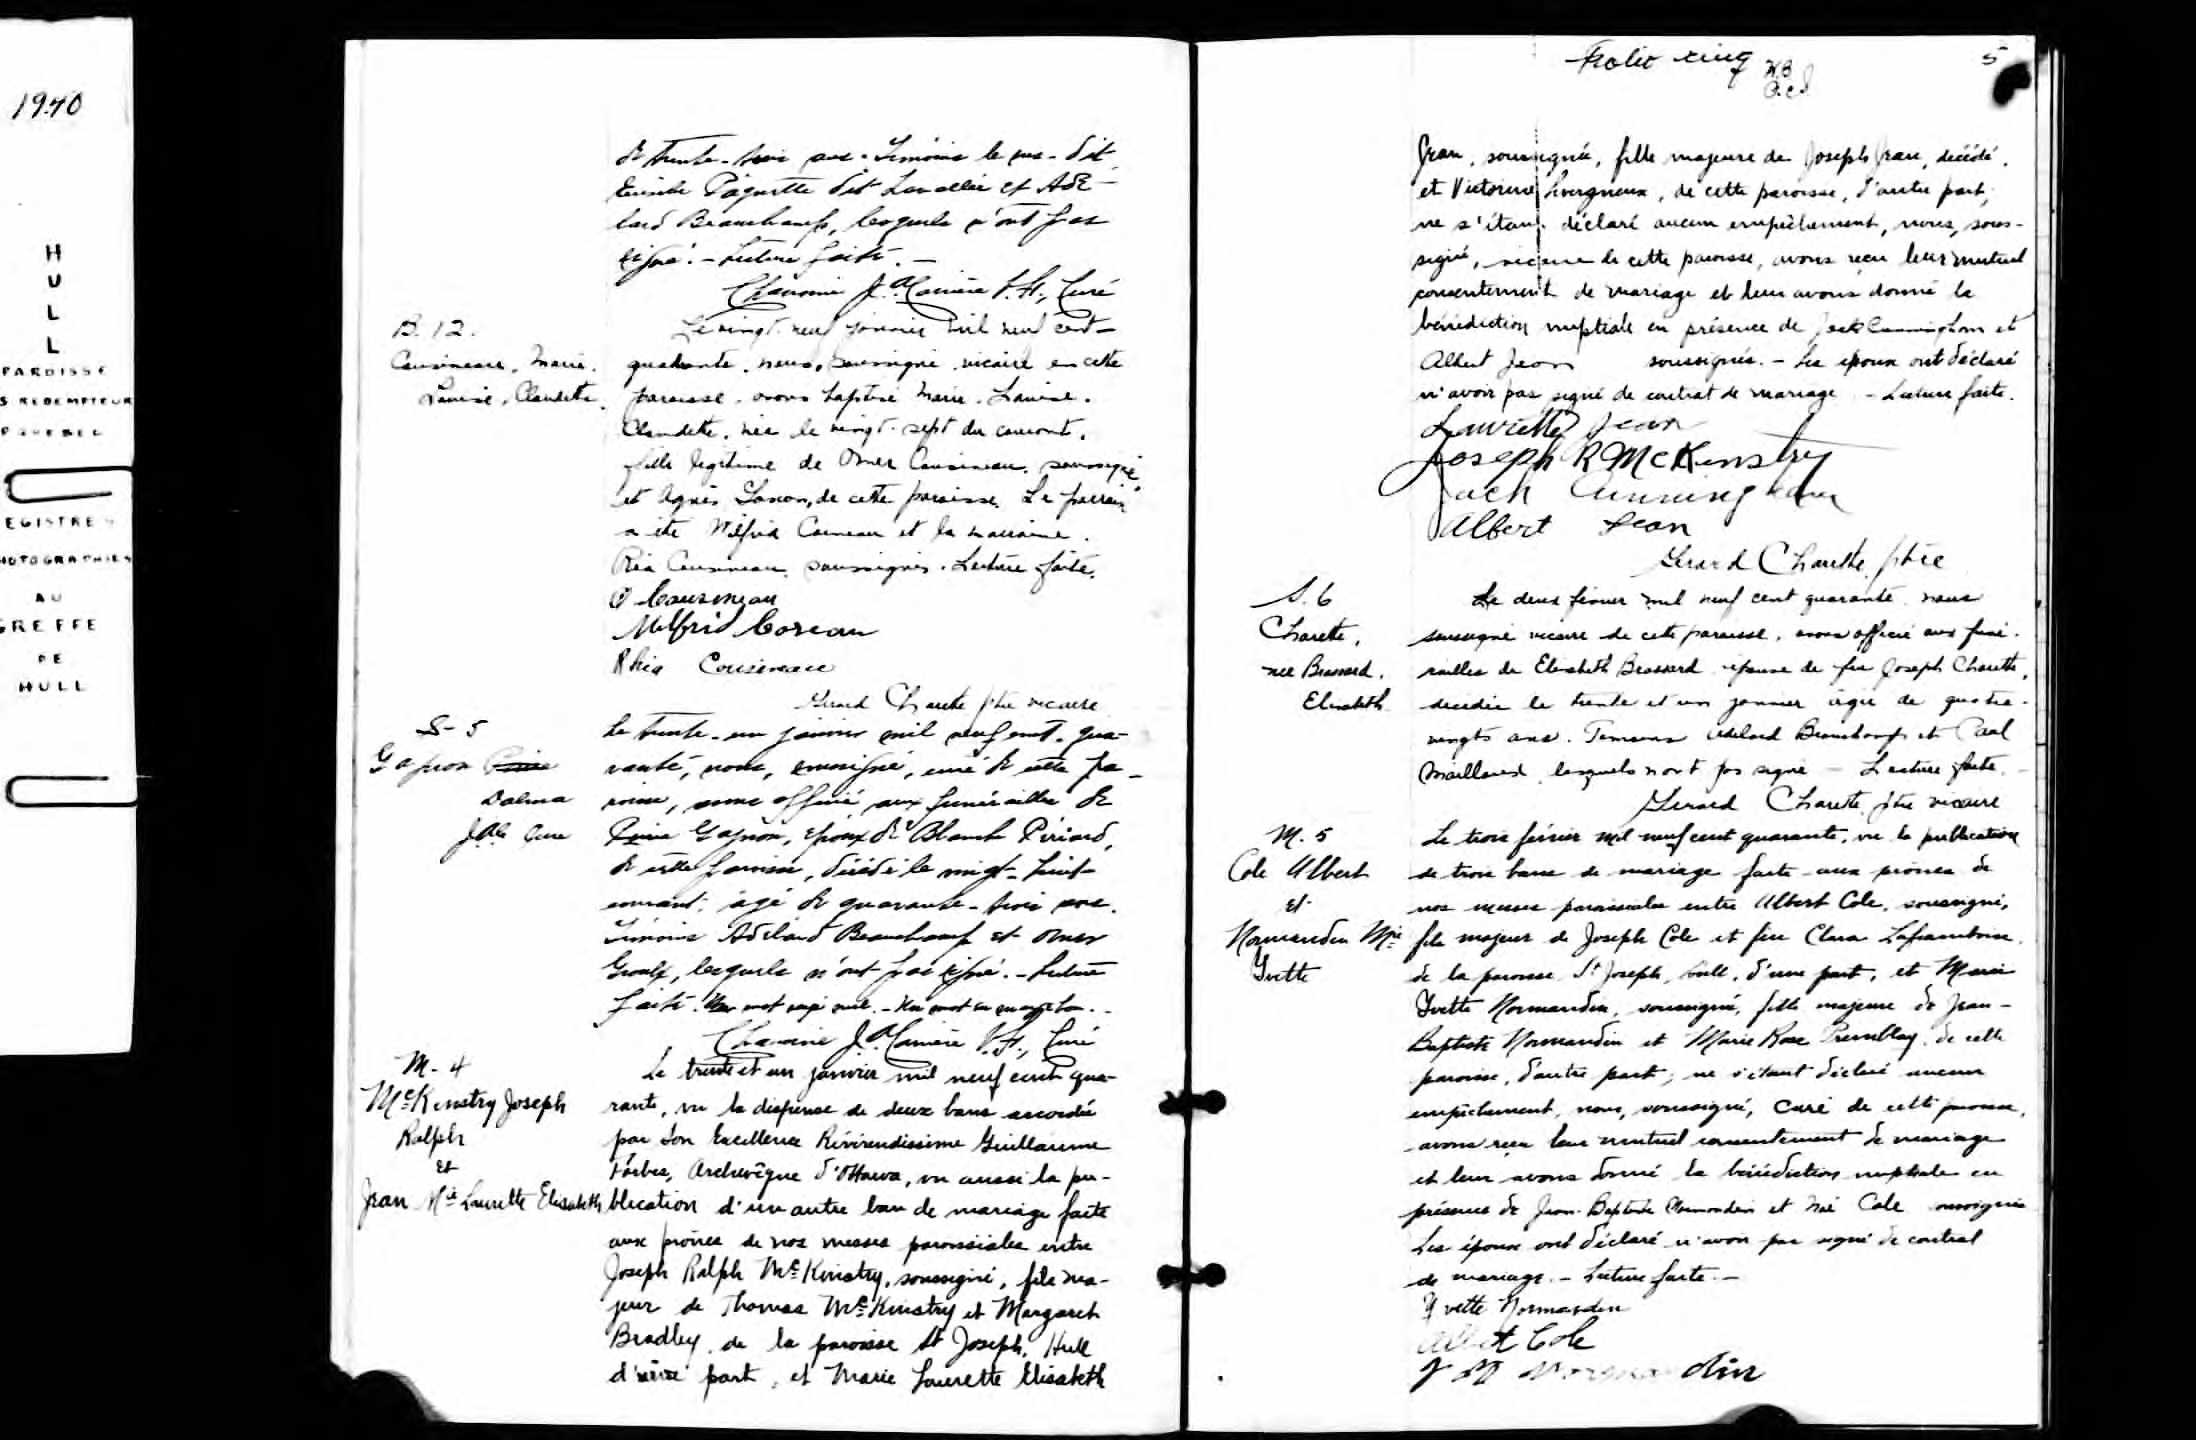 1940
H
U
L
L
PAROISSE
S REDEMPTEUR
QUEBEC
EGISTRE
HOTOGRAPHIES
AU
GREFFE
DE
HULL
de trente-trois ans. Témoins le sus-dit
Paquette dit Lavallée et Adé-
lard Beauchamp, lesquels n'ont pas
signé. - Lecture faite. -
Chanoine J.A. Carrière V.F., Curé
B. 12.
Cousineau, Marie.
Louise, Claudette.
Le vingt-neuf janvier mil neuf cent-
quarante, nous, soussigné, vicaire en cette
paroisse, avons baptisé Marie. Louise.
Claudette, née le vingt-sept du courant,
fille légitime de Omer Cousineau, soussigné
et Agnès de cette paroisse. Le parrain
a été Wilfrid et la marraine.
Réa Cousineau, soussignés. Lecture faite.
O Cousineau
Wilfrid
Rhéa Cousineau
Gérard Charette ptre vicaire
S-5
Gagnon
Dalma
J.A.C. Curé
Le trente-un janvier mil neuf cent-qua-
rante, nous, soussigné, curé de cette pa-
roisse, avons officié aux funérailles de
Gagnon, époux de Blanche Périard,
de cette paroisse, décédé le vingt-huit
courant, âgé de quarante-trois ans.
Témoins Adélard Beauchamp et Omer
Groulx, lesquels n'ont pas signé. - Lecture
faite. Un mot rayé nul. - Un mot en marge bon. -
Chanoine J.A. Carrière V.F., Curé
M-4
McKinstry Joseph
Ralph
et
Jean Mie Laurette Elisabeth
Le trente et un janvier mil neuf cent qua-
rante, vu la dispense de deux bans accordée
par Son Excellence Révérendissime Guillaume
Forbes, Archevêque d'Ottawa, vu aussi la pu-
blication d'un autre ban de mariage faite
aux prônes de nos messes paroissiales entre
Joseph Ralph McKinstry, soussigné, fils ma-
jeur de Thomas McKinstry et Margaret
Bradley, de la paroisse St Joseph, Hull
d'une part, et Marie Laurette Elisabeth
Folio cinq
5
Jean, soussignée, fille majeure de Joseph Jean, décédé,
et Victorine de cette paroisse, d'autre part;
ne s'étant déclaré aucun empêchement, nous, sous-
signé, vicaire de cette paroisse, avons reçu leur mutuel
consentement de mariage et leur avons donné la
bénédiction nuptiale en présence de Jack Cunningham et
Albert Jean soussignés. - Les époux ont déclaré
n'avoir pas signé de contrat de mariage. - Lecture faite.
Laurette Jean
Joseph R McKinstry
Jack Cunningham
Albert Jean
Gérard Charette, ptre
S. 6
Charette,
née Brossard,
Elisabeth
Le deux février mil neuf cent quarante, nous
soussigné vicaire de cette paroisse, avons officié aux funé-
railles de Elisabeth Brossard épouse de feu Joseph Charette,
décédée le trente et un janvier âgée de quatre-
vingts ans. Témoins Adélard Beauchamp et Paul
Maillard, lesquels n'ont pas signé - Lecture faite. -
Gérard Charette, ptre vicaire
M. 5
Cole Albert
et
Normandin Mie
Yvette
Le trois février mil neuf cent quarante, vu la publication
de trois bans de mariage faite aux prônes de
nos messes paroissiales entre Albert Cole, soussigné,
fils majeur de Joseph Cole et feue Clara Laframboise,
de la paroisse St Joseph, Hull, d'une part, et Marie
Yvette Normandin, soussignée, fille majeure de Jean-
Baptiste Normandin et Marie Rose Tremblay, de cette
paroisse, d'autre part; ne s'étant déclaré aucun
empêchement, nous, soussigné, curé de cette paroisse,
avons reçu leur mutuel consentement de mariage
et leur avons donné la bénédiction nuptiale en
présence de Jean-Baptiste Normandin et Cole soussignés
Les époux ont déclaré n'avoir pas signé de contrat
de mariage. - Lecture faite. -
Yvette Normandin
Albert Cole
Normandin